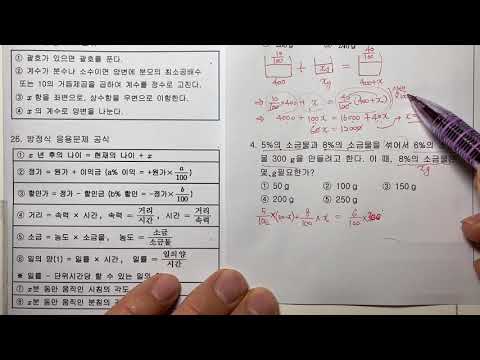 ① 괄호가 있으면 괄호를 푼다.
② 계수가 분수나 소수이면 양변에 분모의 최소공배수
또는 10의 거듭제곱을 곱하여 계수를 정수로 고친다.
③ x항을 좌변으로, 상수항을 우변으로 이항한다.
④ x의 계수로 양변을 나눈다.
26. 방정식 응용문제 공식
① x년 후의 나이 = 현재의 나이 + x
② 정가 = 원가 + 이익금 (a% 이익 = +원가×a/100)
③ 할인가 = 정가 - 할인금 (b% 할인 = -정가×b/100)
④ 거리 = 속력 × 시간, 속력 = 거리/시간, 시간 = 거리/속력
⑤ 소금 = 농도 × 소금물, 농도 = 소금/소금물
⑥ 일의 양(1) = 일률 × 시간, 일률 = 일의양/시간
※ 일률 - 단위시간당 할 수 있는 일의
① x분 동안 움직인 시침의 각도
② x분 동안 움직인 분침의 각
10/100
40/100
400 ÷ xg = 400+x
⇒ 10/100×400 + x = 40/100×(400+x)
⇒ 4000 + 100x = 16000 + 40x
60x = 12000
4. 5%의 소금물과 8%의 소금물을 섞어서 6%의
물 300 g을 만들려고 한다. 이 때, 8%의 소금물
몇 g 필요한가?
xg
① 50 g ② 100 g ③ 150 g
④ 200 g ⑤ 250 g
5/100×(300-x)+8/100×x = 6/100×300